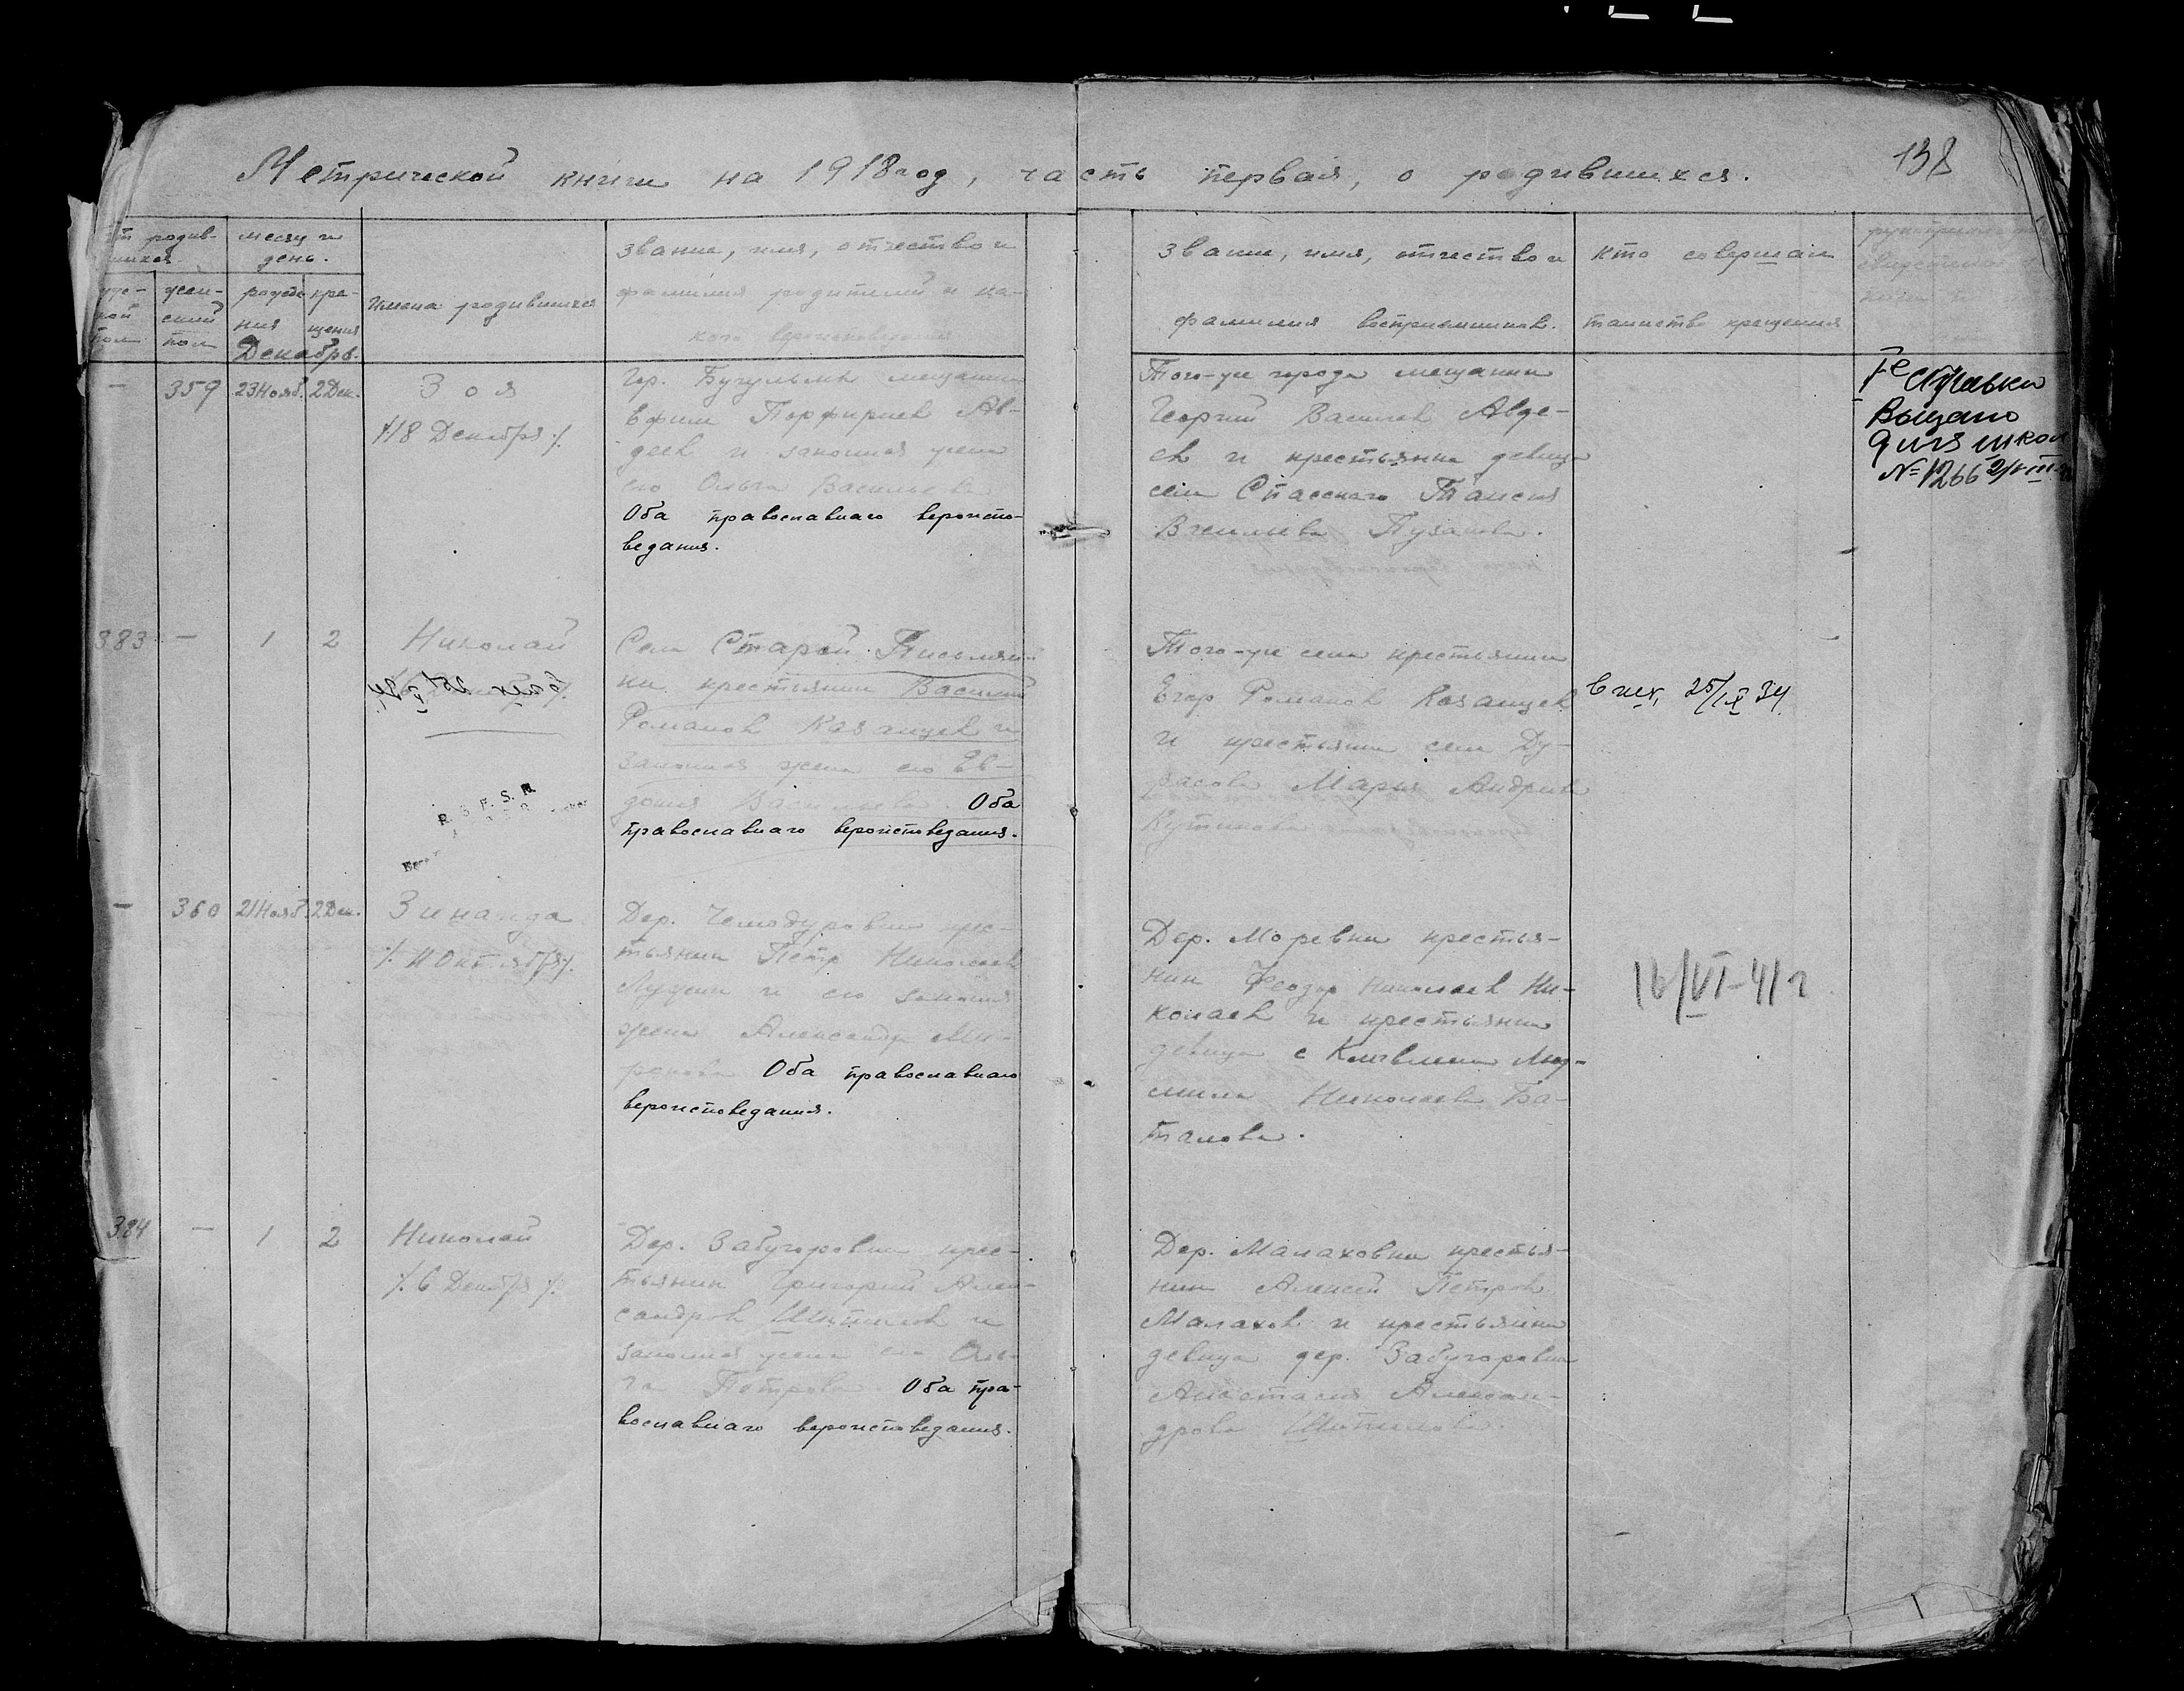 Метрической книги на 1918 год, часть первая, о родившихся.
138
родив-
шихся
месяц и
день.
жен-
ский
пол
рожде
ния
кре-
щения
Декабрь.
Имена родившихся
звание, имя, отчество и
фамилия родителей и ка-
кого вероисповедания
звание, имя, отчество и
фамилия восприемников.
кто совершал
таинство крещения
— 359 23 Нояб. 2 Дек.
Зоя
/18 Декабря/.
Гор. Бугульмы мещанин
Ефим Порфириев Ав-
деев и законная жена
его Ольга Васильева
Оба православнаго вероиспо-
ведания.
Того-же города мещанин
Георгий Васильев Авде-
ев и крестьянка девица
села Спасскаго Таисия
Васильева Пузанова.
Справка
Выдано
для школ
№ 1266
383 — 1 2
Николай
Села Старой Письмян-
ки крестьянин Василий
Романов Казанцев и
законная жена его Ев-
докия Васильева. Оба
православнаго вероисповедания.
Того-же села крестьянин
Егор Романов Казанцев
и крестьянка села Ду-
расова Мария Андреева
25/IX 34
— 360 21 Нояб. 2 Дек.
Зинаида
/. 11 Октября /.
Дер. Чемодуровки крес-
тьянин Петр Николаев
и его законная
жена Александра Ми-
ронова Оба православнаго
вероисповедания.
Дер. Моревки крестья-
нин Феодор Николаев Ни-
колаев и крестьянка
девица с Клявлина Люд-
мила Николаева Ба-
талова.
16/VI-41 г
384 — 1 2
Николай
/. 6 Декабря /.
Дер. Забугоровки крес-
тьянин Григорий Алек-
сандров Шипилов и
законная жена его Оль-
га Петрова. Оба пра-
вославнаго вероисповедания.
Дер. Малаховки крестья-
нин Алексей Петров
Малахов и крестьянка
девица дер. Забугоровки
Анастасия Алексан-
дрова Шипилова.